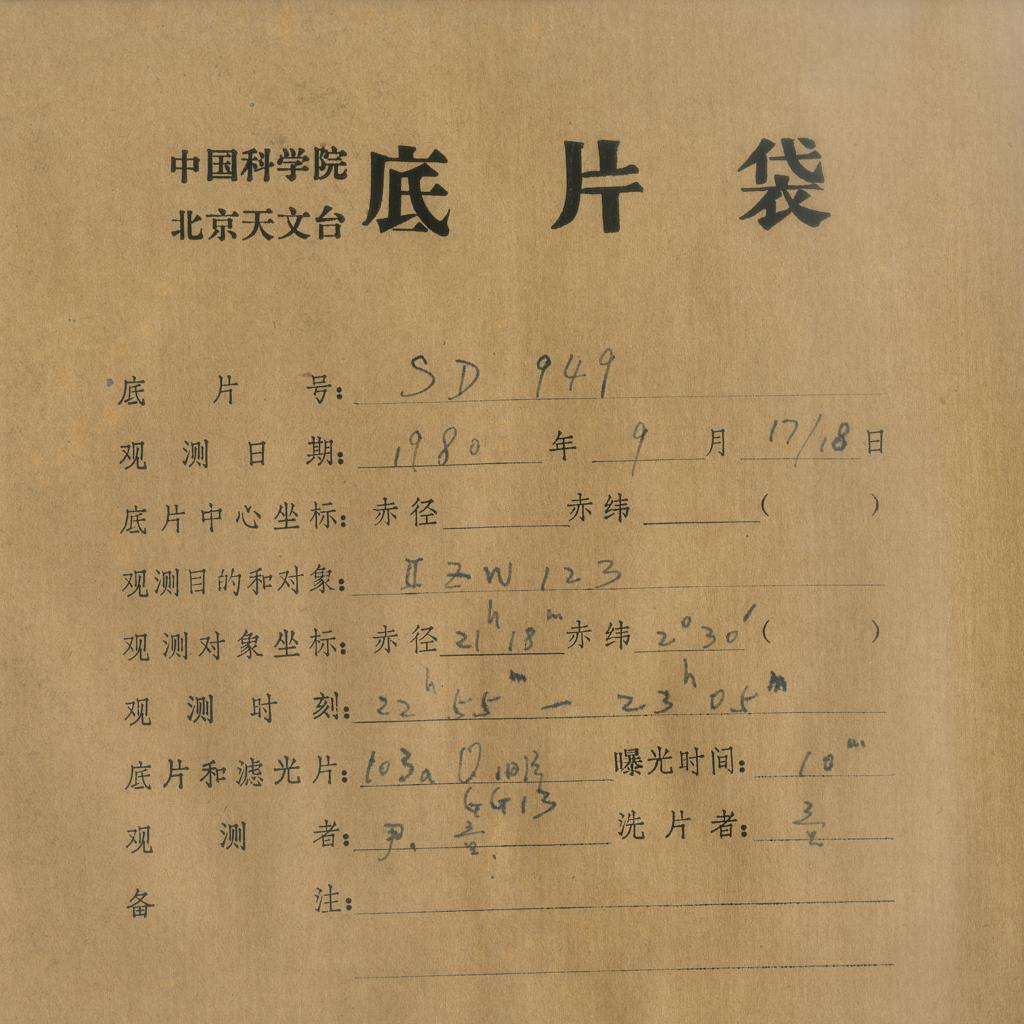 中国科学院
北京天文台
底片袋
底片号： SD 949
观测日期： 1980 年 9 月 17/18 日
底片中心坐标：赤径 赤纬 ( )
观测目的和对象： II ZW 123
观测对象坐标：赤径 21h 18m 赤纬 2°30′ ( )
观测时刻： 22h 55m — 23h 05m
底片和滤光片： 103a O 曝光时间： 10m
GG13
观测者： 尹. 洗片者：
备注：